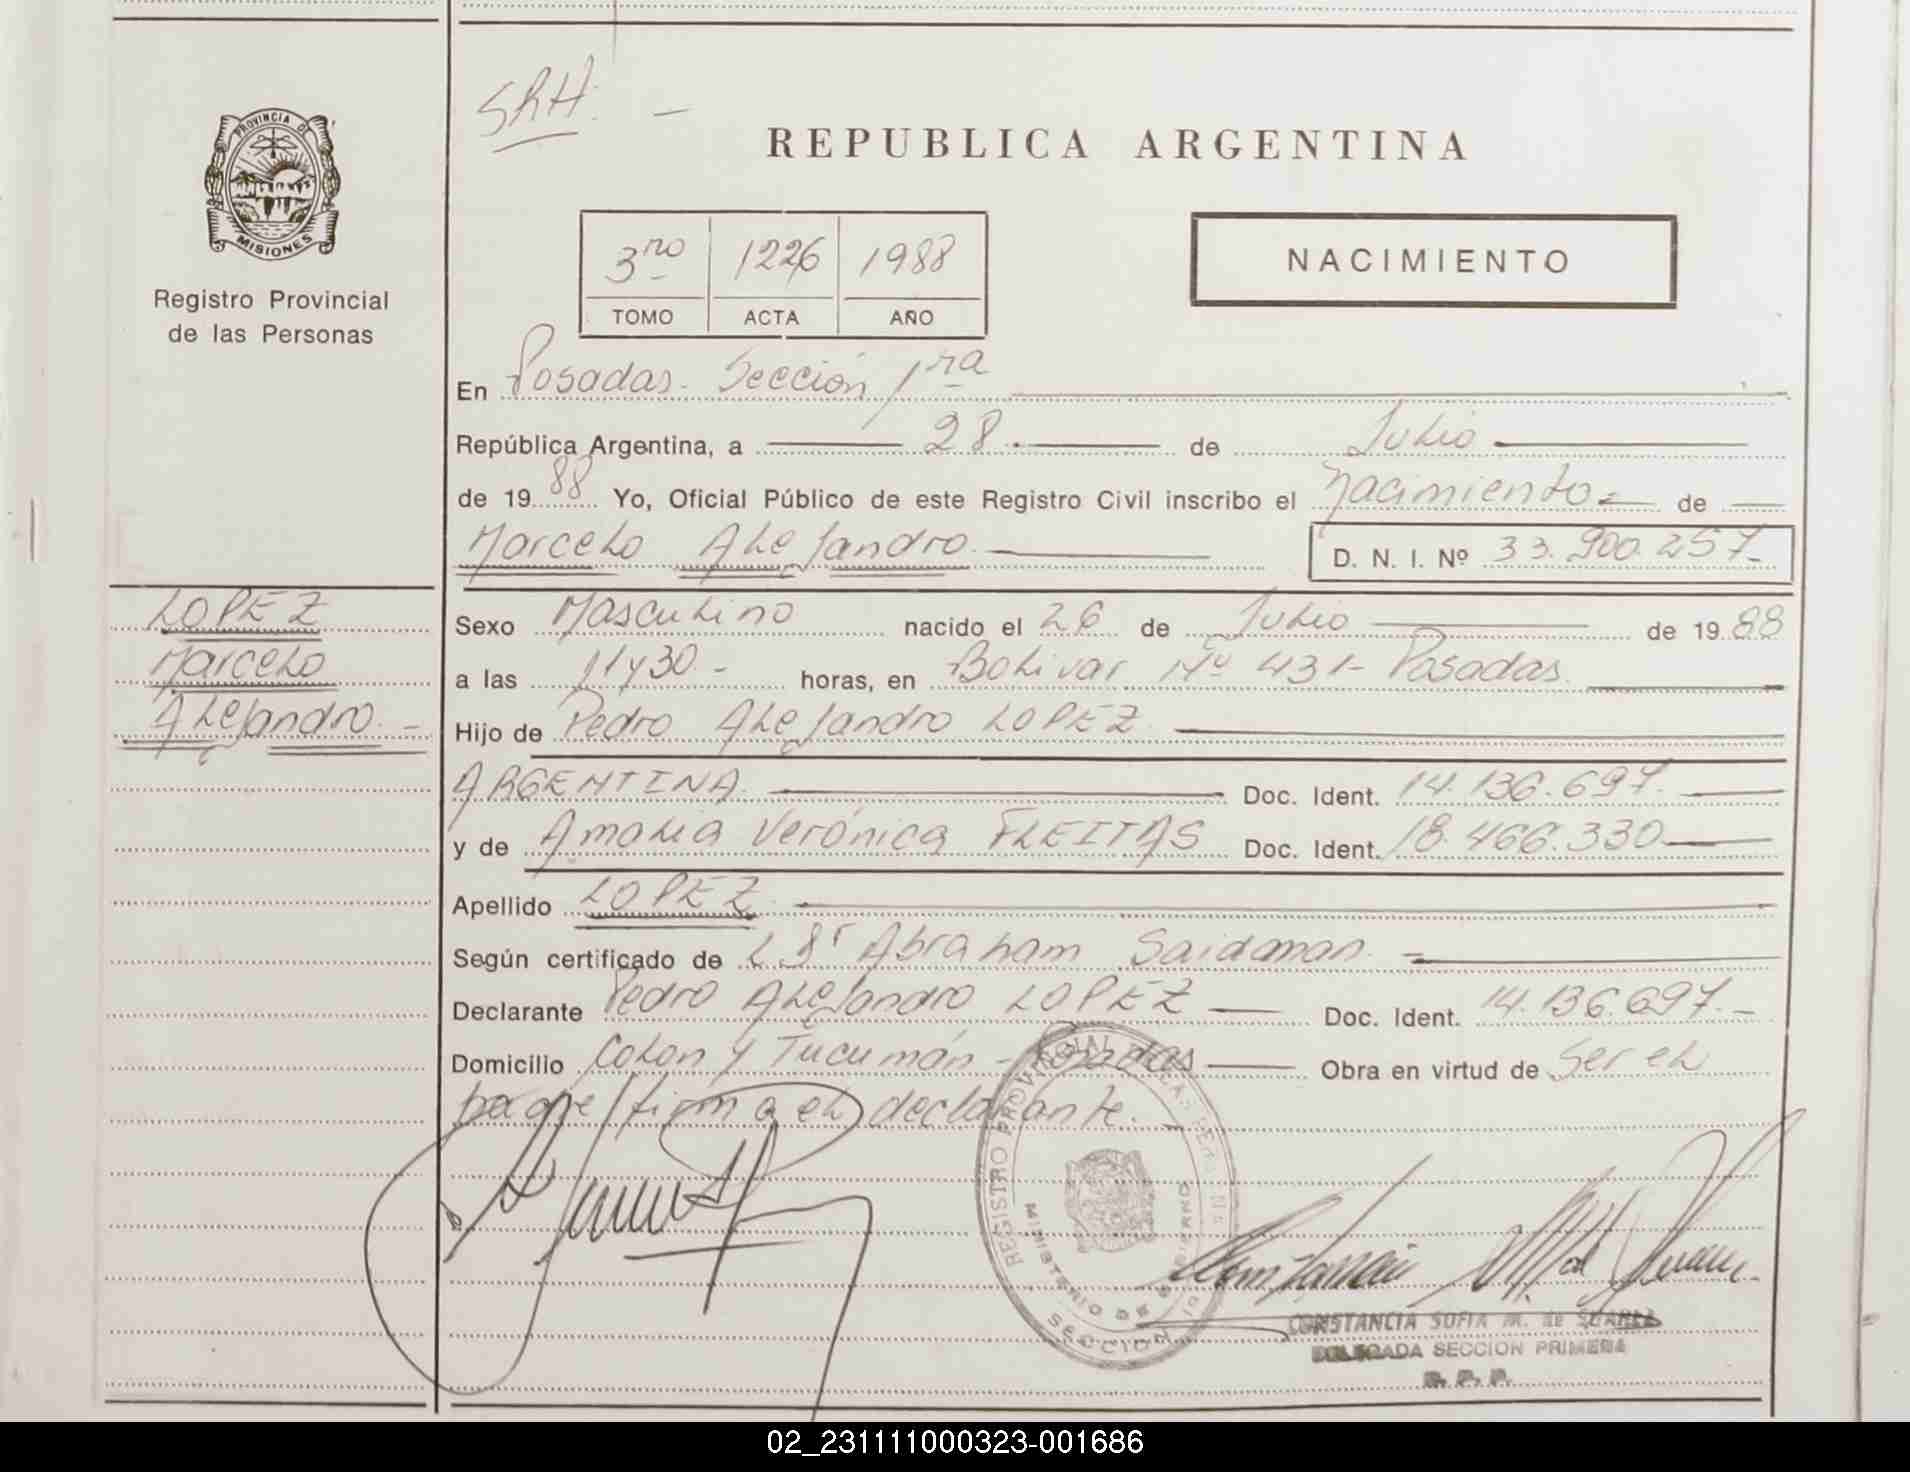 SRH. -
PROVINCIA DE
MISIONES
Registro Provincial
de las Personas
REPUBLICA ARGENTINA
3ro 1226 1988
TOMO ACTA AÑO
NACIMIENTO
En Posadas. Sección 1ra
República Argentina, a 28. de Julio
de 1988 Yo, Oficial Público de este Registro Civil inscribo el Nacimiento de
Marcelo Alejandro. D. N. I. Nº 33.900.257-
LOPEZ
Marcelo
Alejandro. -
Sexo Masculino nacido el 26 de Julio de 1988
a las 11 y 30 - horas, en Bolivar Nº 431- Posadas.
Hijo de Pedro Alejandro LOPEZ.
ARGENTINA. Doc. Ident. 14.136.697.
y de Amalia Verónica FLEITAS Doc. Ident. 18.466.330
Apellido LOPEZ.
Según certificado de Abraham
Declarante Pedro Alejandro LOPEZ Doc. Ident. 14.136.697. -
Domicilio Colon y Tucumán - Posadas Obra en virtud de ser el
padre firma el declarante.
REGISTRO PROVINCIAL DE LAS PERSONAS
MINISTERIO DE GOBIERNO
SECCION
CONSTANCIA SOFIA M. de SUAREZ
DELEGADA SECCION PRIMERA
R. P. P.
02_231111000323-001686